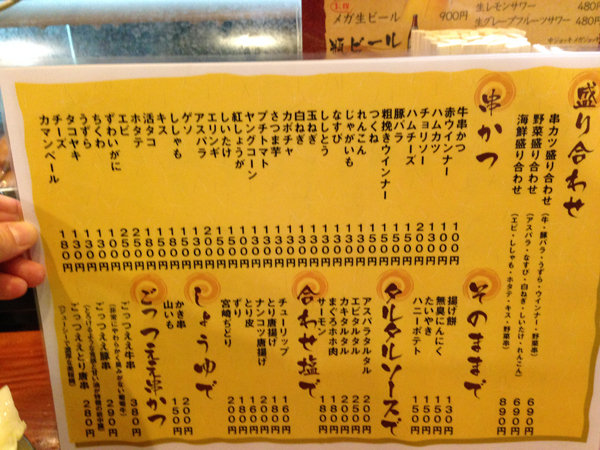 生レモンサワー 480円
メガ生ビール 900円
生グレープフルーツサワー 480円
瓶ビール
盛り合わせ
串カツ盛り合わせ (牛・豚バラ・うずら・ウインナー・野菜串) 690円
野菜盛り合わせ (アスパラ・なすび・白ねぎ・しいたけ・れんこん) 690円
海鮮盛り合わせ (エビ・ししゃも・ホタテ・キス・野菜串) 890円
串かつ
牛串かつ 100円
赤ウインナー 100円
ハムカツ 130円
チョリソー 200円
ハムチーズ 150円
豚バラ 150円
粗挽きウインナー 150円
つくね
れんこん
じゃがいも
なすび
ししとう
玉ねぎ
白ねぎ
カボチャ
さつま芋
プチトマト
ヤングコーン
紅しょうが
しいたけ
エリンギ
アスパラ 200円
ゲソ 150円
ししゃも 150円
キス 180円
活タコ 150円
ホタテ 250円
エビ 250円
ずわいがに
ちくわ
うずら
タコヤキ 130円
チーズ 130円
カマンベール 180円
そのままで
揚げ餅 130円
無臭にんにく 150円
たいやき 150円
ハニーポテト 150円
タルタルソースで
アスパラタルタル 200円
エビタルタル 250円
カキタルタル 200円
まぐろホホ肉
サーモン 180円
合わせ塩で
チューリップ 160円
とり唐揚げ
ナンコツ唐揚げ
とり皮
ずり
宮崎ちどり 200円
しょうゆで
かき串 200円
山いも 150円
ごっつええ串かつ
ごっつええ牛串 380円
ごっつええ豚串 290円
ごっつええとり唐串 280円